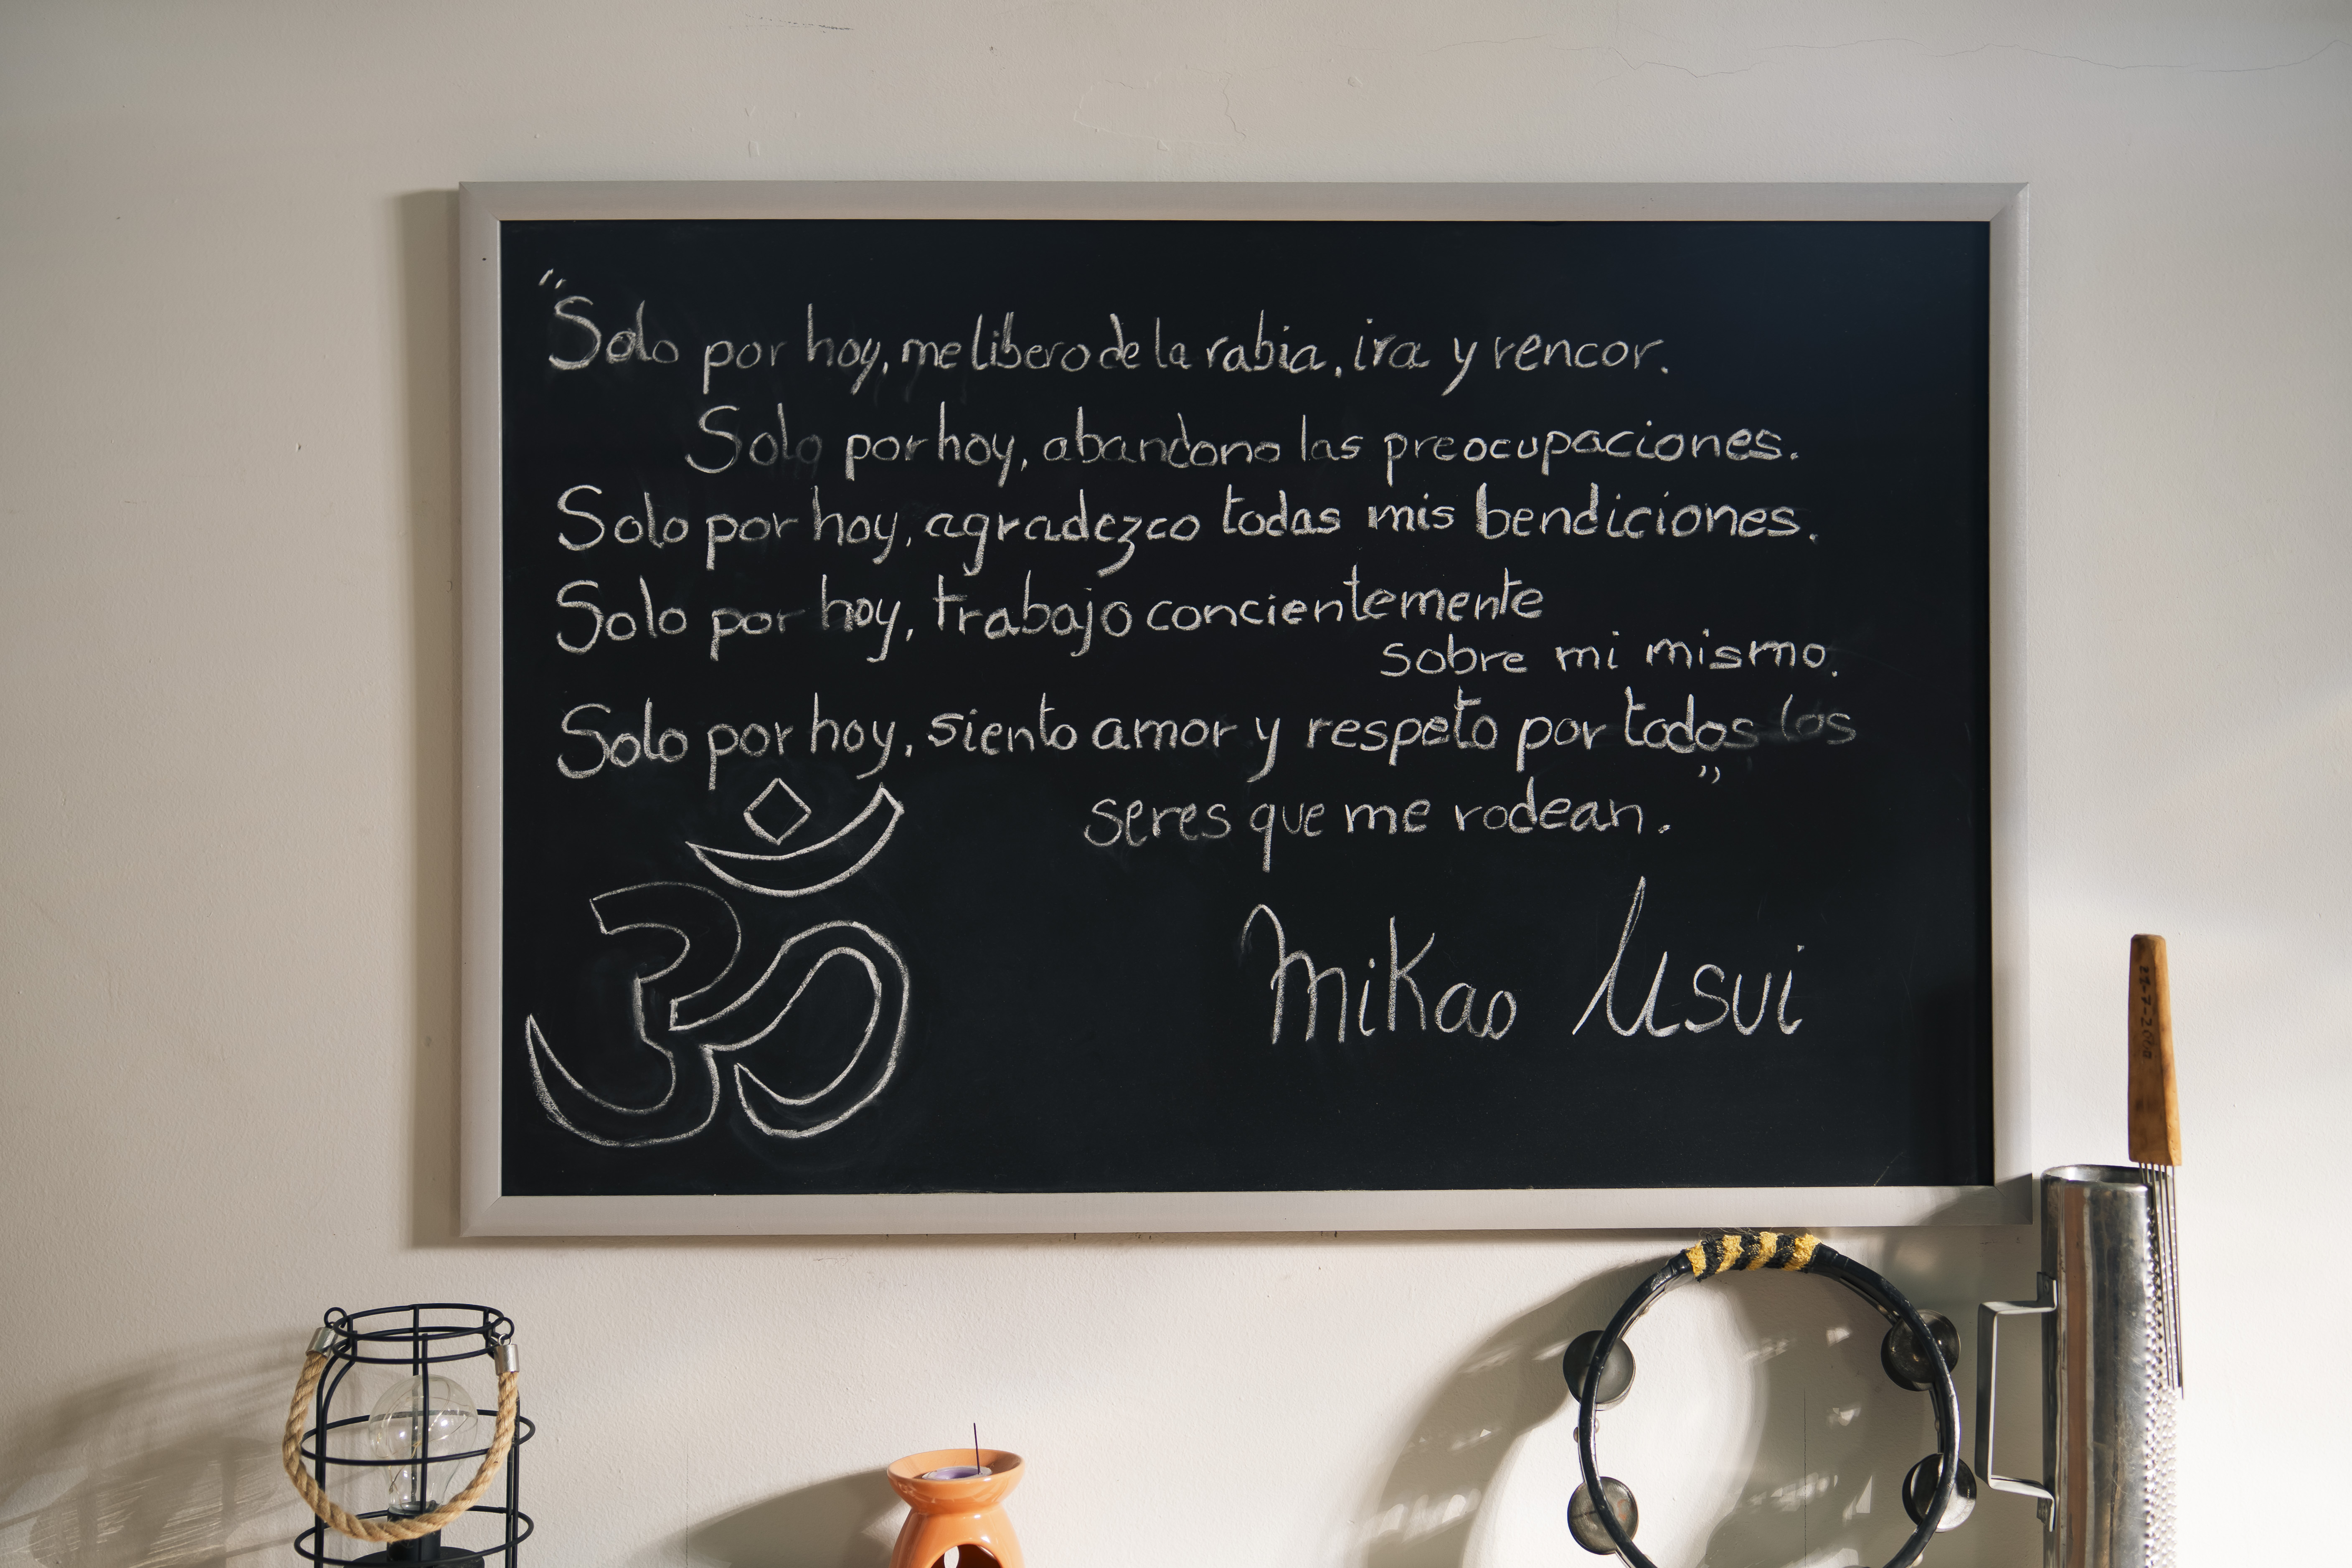 “Solo por hoy, me libero de la rabia, ira y rencor.
Solo por hoy, abandono las preocupaciones.
Solo por hoy, agradezco todas mis bendiciones.
Solo por hoy, trabajo concientemente
sobre mi mismo.
Solo por hoy, siento amor y respeto por todos los
seres que me rodean.”
Mikao Usui
ॐ